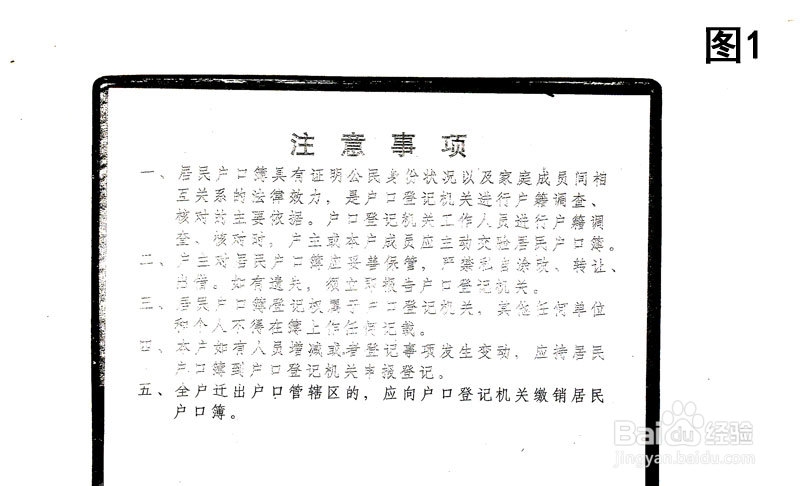 图1
注意事项
一、居民户口簿具有证明公民身份状况以及家庭成员间相
互关系的法律效力，是户口登记机关进行户籍调查、
核对的主要依据。户口登记机关工作人员进行户籍调
查、核对时，户主或本户成员应主动交验居民户口簿。
二、户主对居民户口簿应妥善保管，严禁私自涂改、转让、
出借。如有遗失，须立即报告户口登记机关。
三、居民户口簿登记权属于户口登记机关，其他任何单位
和个人不得在簿上作任何记载。
四、本户如有人员增减或者登记事项发生变动，应持居民
户口簿到户口登记机关申报登记。
五、全户迁出户口管辖区的，应向户口登记机关缴销居民
户口簿。
Baidu经验
jingyan.baidu.com